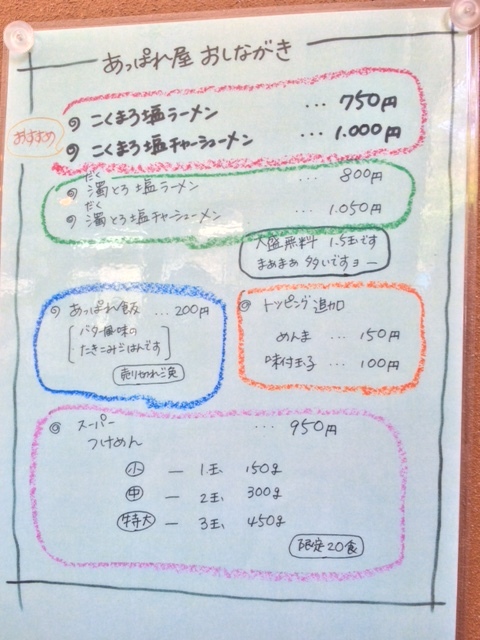 あっぱれ屋 おしながき
おすすめ
◎ こくまろ塩ラーメン … 750円
◎ こくまろ塩チャーシューメン … 1.000円
だく
◎ 濁とろ塩ラーメン … 800円
だく
◎ 濁とろ塩チャーシューメン … 1.050円
大盛無料 1.5玉です
まあまあ 多いですヨー
◎ あっぱれ飯 … 200円
バター風味の
たきこみごはんです
売り切れご免
◎ トッピング追加
めんま … 150円
味付玉子 … 100円
◎ スーパー … 950円
つけめん
小 ー 1玉 150g
中 ー 2玉 300g
特大 ー 3玉 450g
限定20食